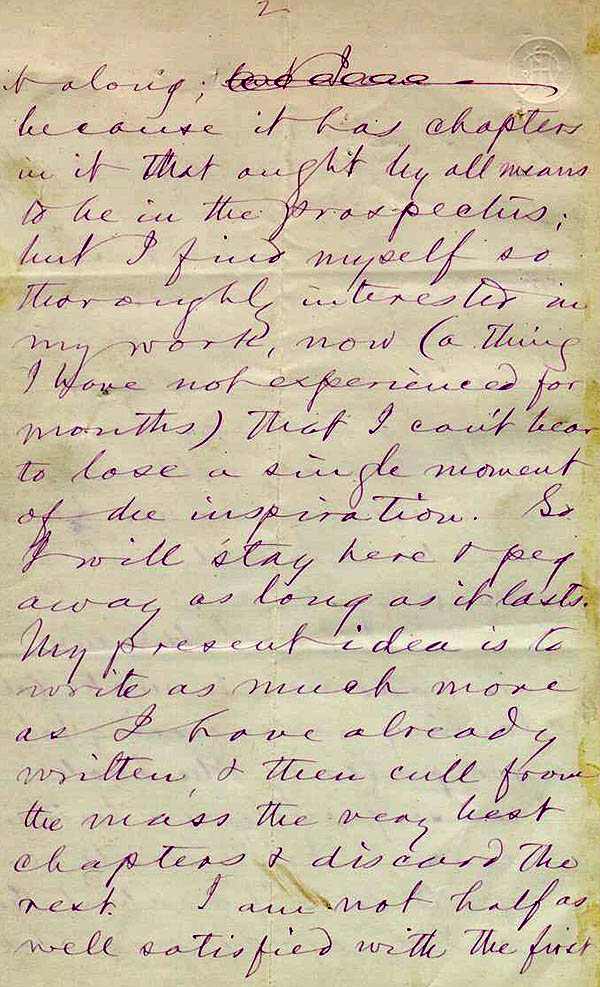 2
it along;
because it has chapters
in it that ought by all means
to be in the prospectus;
but I find myself so
thoroughly interested in
my work, now (a thing
I have not experienced for
months) that I can't bear
to lose a single moment
of the inspiration. So
I will stay here & peg
away as long as it lasts.
My present idea is to
write as much more
as I have already
written, & then cull from
the mass the very best
chapters & discard the
rest. I am not half as
well satisfied with the first